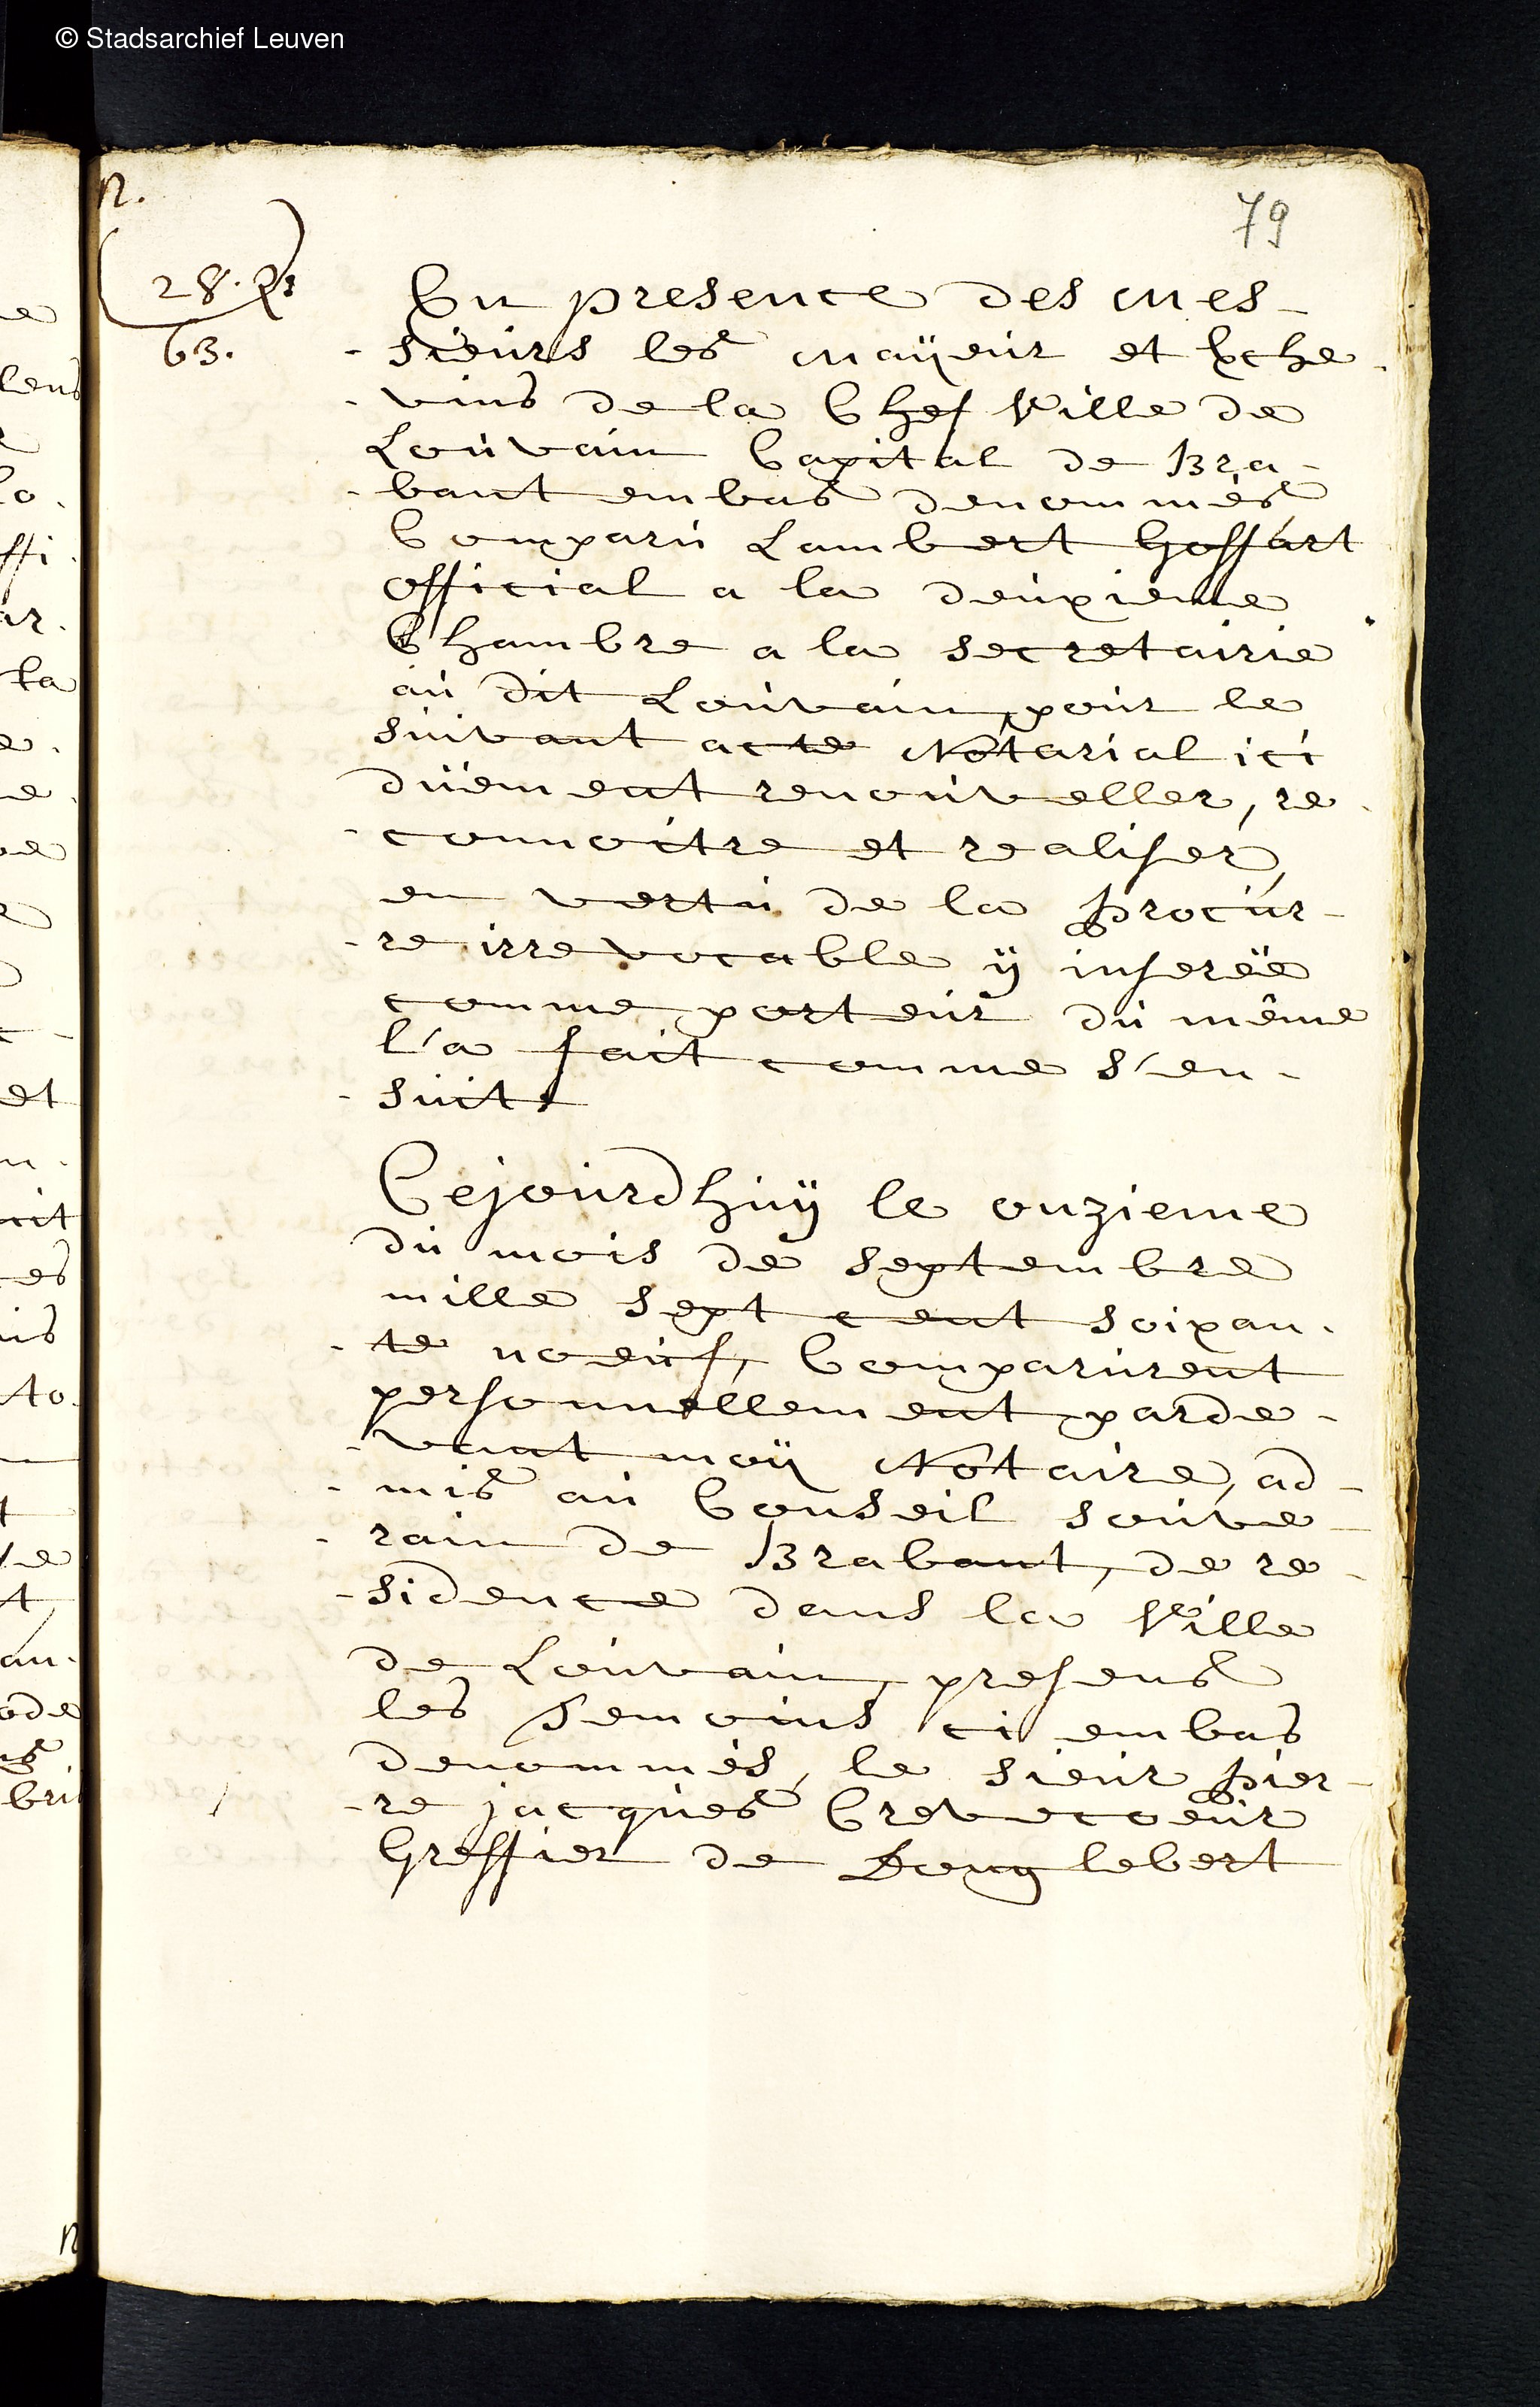 © Stadsarchief Leuven
n.
79
28.
63.
En presence des Mes-
-sieurs les Maÿeur et Eche-
-vins de la Chef Ville de
Louvain Capital de Bra-
-bant embas denommés
Comparu Lambert Goffart
official a la deuxieme
Chambre a la secretairie
au dit Louvain, pour le
suivant acte Notarial ici
duëment renouveller, re-
-connoitre et realiser,
en vertu de la procur-
-re irrevocable ÿ inserëe
comme porteur du même
l'a fait comme s'en-
-suit,
Cejourdhuÿ le onzieme
du mois de septembre
mille sept cent soixan-
-te noeuf, Comparurent
personnellement parde-
-vant moÿ Notaire, ad-
-mis au Conseil souve-
-rain de Brabant, de re-
-sidence dans la Ville
de Louvain, presens
les Temoins ci embas
denommés, le sieur pier-
-re jacques Crevecoeur
Greffier de Donglebert